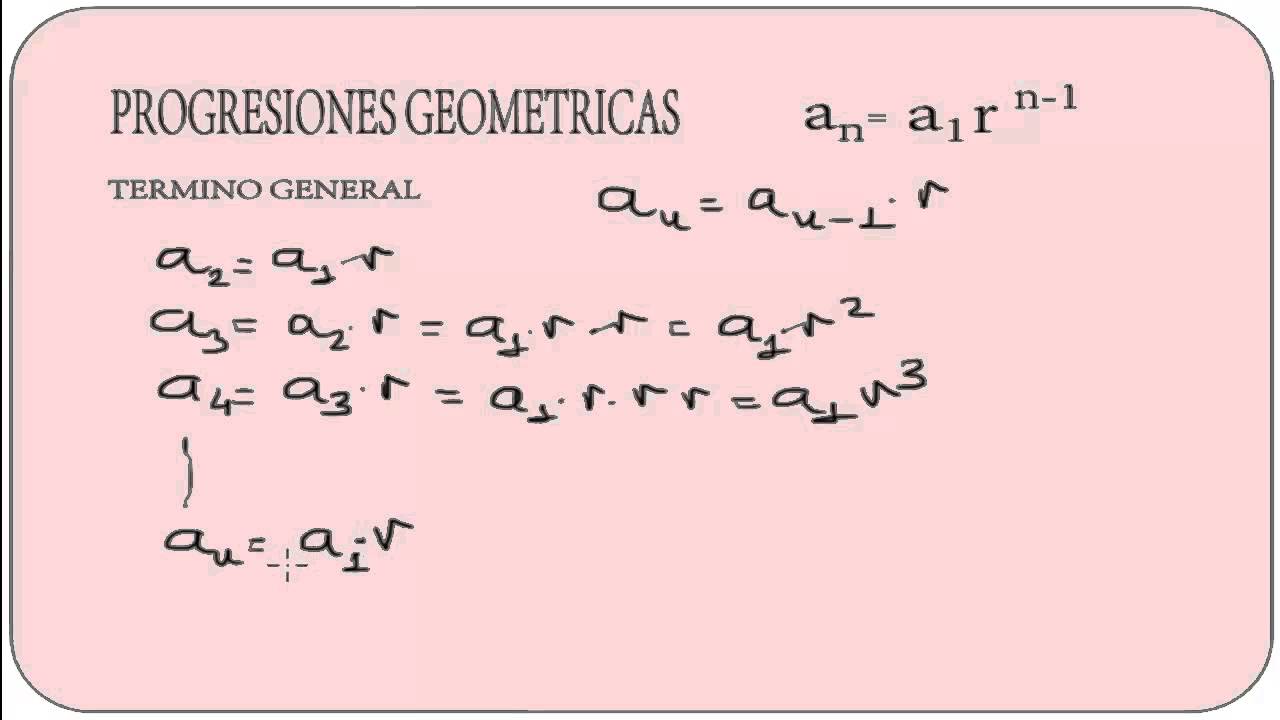 PROGRESIONES GEOMETRICAS
aₙ= a₁ r ⁿ⁻¹
TERMINO GENERAL
aₙ = aₙ₋₁ · r
a₂ = a₁ · r
a₃ = a₂ · r = a₁ · r · r = a₁ · r²
a₄ = a₃ · r = a₁ · r · r r = a₁ r³
aₙ = a₁ · r